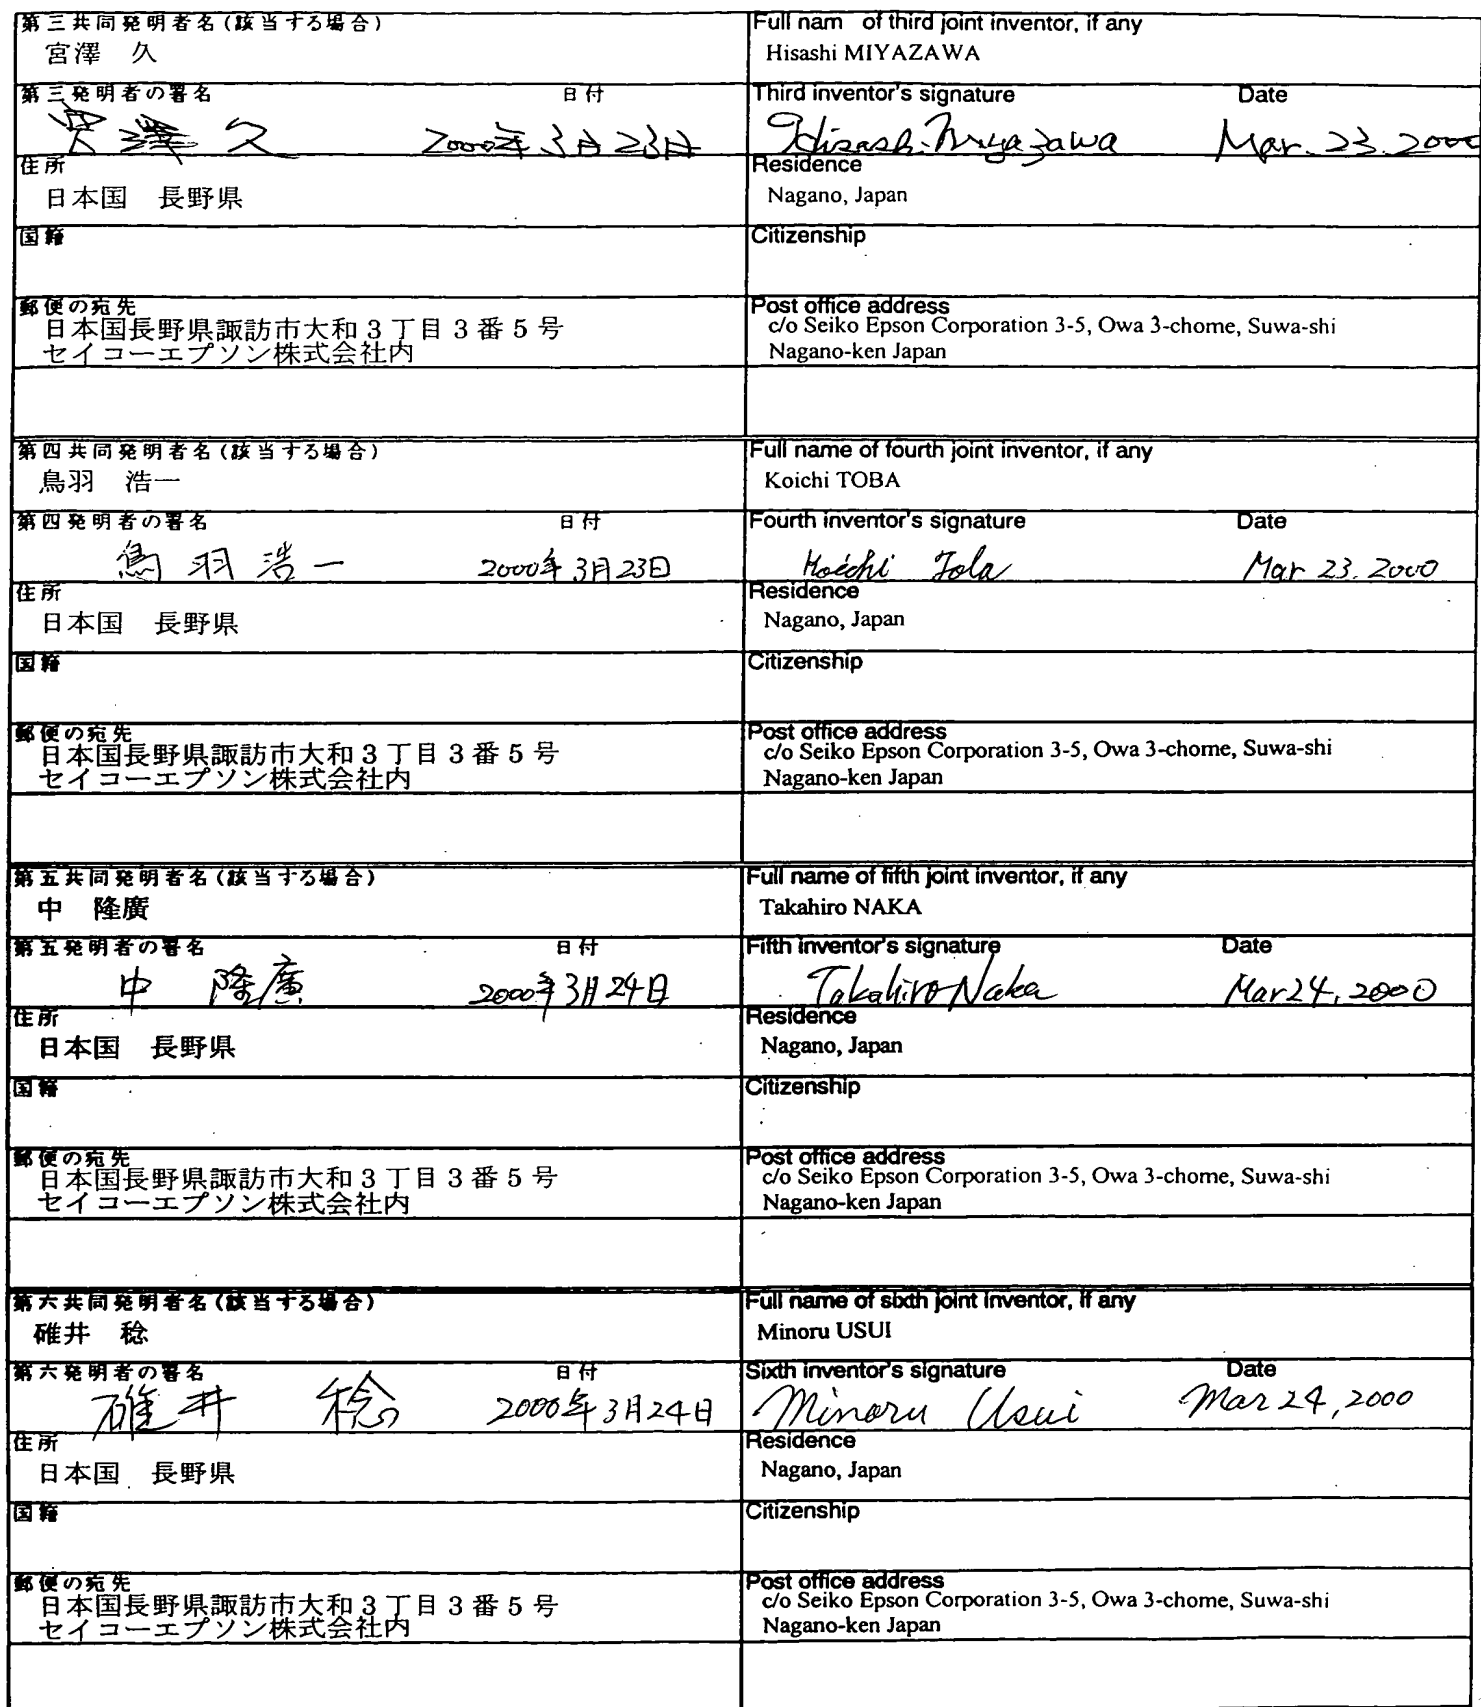 第三共同発明者名(該当する場合)
宮澤 久
Full nam of third joint inventor, if any
Hisashi MIYAZAWA
第三発明者の署名 日付
宮澤 久 2000年3月23日
Third inventor's signature Date
Hisashi Miyazawa Mar. 23. 2000
住所
日本国 長野県
Residence
Nagano, Japan
国籍
Citizenship
郵便の宛先
日本国長野県諏訪市大和3丁目3番5号
セイコーエプソン株式会社内
Post office address
c/o Seiko Epson Corporation 3-5, Owa 3-chome, Suwa-shi
Nagano-ken Japan
第四共同発明者名(該当する場合)
鳥羽 浩一
Full name of fourth joint inventor, if any
Koichi TOBA
第四発明者の署名 日付
鳥羽浩一 2000年3月23日
Fourth inventor's signature Date
Koichi Toba Mar 23. 2000
住所
日本国 長野県
Residence
Nagano, Japan
国籍
Citizenship
郵便の宛先
日本国長野県諏訪市大和3丁目3番5号
セイコーエプソン株式会社内
Post office address
c/o Seiko Epson Corporation 3-5, Owa 3-chome, Suwa-shi
Nagano-ken Japan
第五共同発明者名(該当する場合)
中 隆廣
Full name of fifth joint inventor, if any
Takahiro NAKA
第五発明者の署名 日付
中 隆廣 2000年3月24日
Fifth inventor's signature Date
Takahiro Naka Mar 24, 2000
住所
日本国 長野県
Residence
Nagano, Japan
国籍
Citizenship
郵便の宛先
日本国長野県諏訪市大和3丁目3番5号
セイコーエプソン株式会社内
Post office address
c/o Seiko Epson Corporation 3-5, Owa 3-chome, Suwa-shi
Nagano-ken Japan
第六共同発明者名(該当する場合)
碓井 稔
Full name of sixth joint inventor, if any
Minoru USUI
第六発明者の署名 日付
碓井 稔 2000年3月24日
Sixth inventor's signature Date
Minoru Usui Mar 24, 2000
住所
日本国 長野県
Residence
Nagano, Japan
国籍
Citizenship
郵便の宛先
日本国長野県諏訪市大和3丁目3番5号
セイコーエプソン株式会社内
Post office address
c/o Seiko Epson Corporation 3-5, Owa 3-chome, Suwa-shi
Nagano-ken Japan